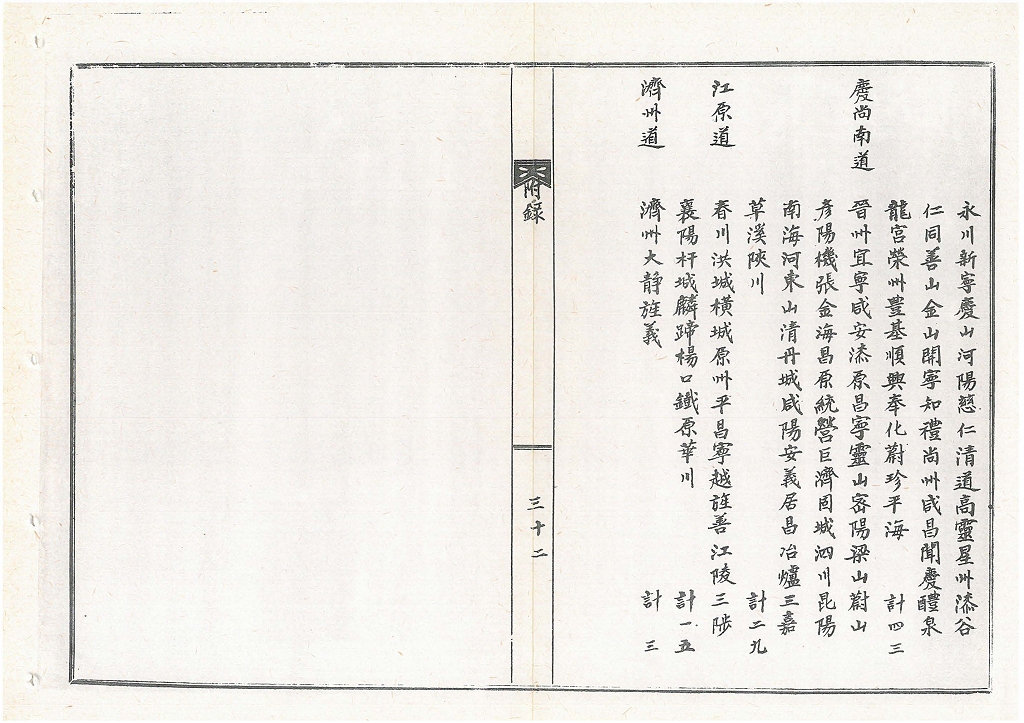 永川新寧慶山河陽慈仁清道高靈星州漆谷
仁同善山金山開寧知禮尚州咸昌聞慶醴泉
龍宮榮州豊基順興奉化蔚珍平海 計四三
慶尚南道 晉州宜寧咸安漆原昌寧靈山密陽梁山蔚山
彦陽機張金海昌原統營巨濟固城泗川昆陽
南海河東山清丹城咸陽安義居昌冶爐三嘉
草溪陜川 計二九
江原道 春川洪城橫城原州平昌寧越旌善江陵三陟
襄陽杆城麟蹄楊口鐵原華川 計一五
濟州道 濟州大靜旌義 計三
附錄
三十二